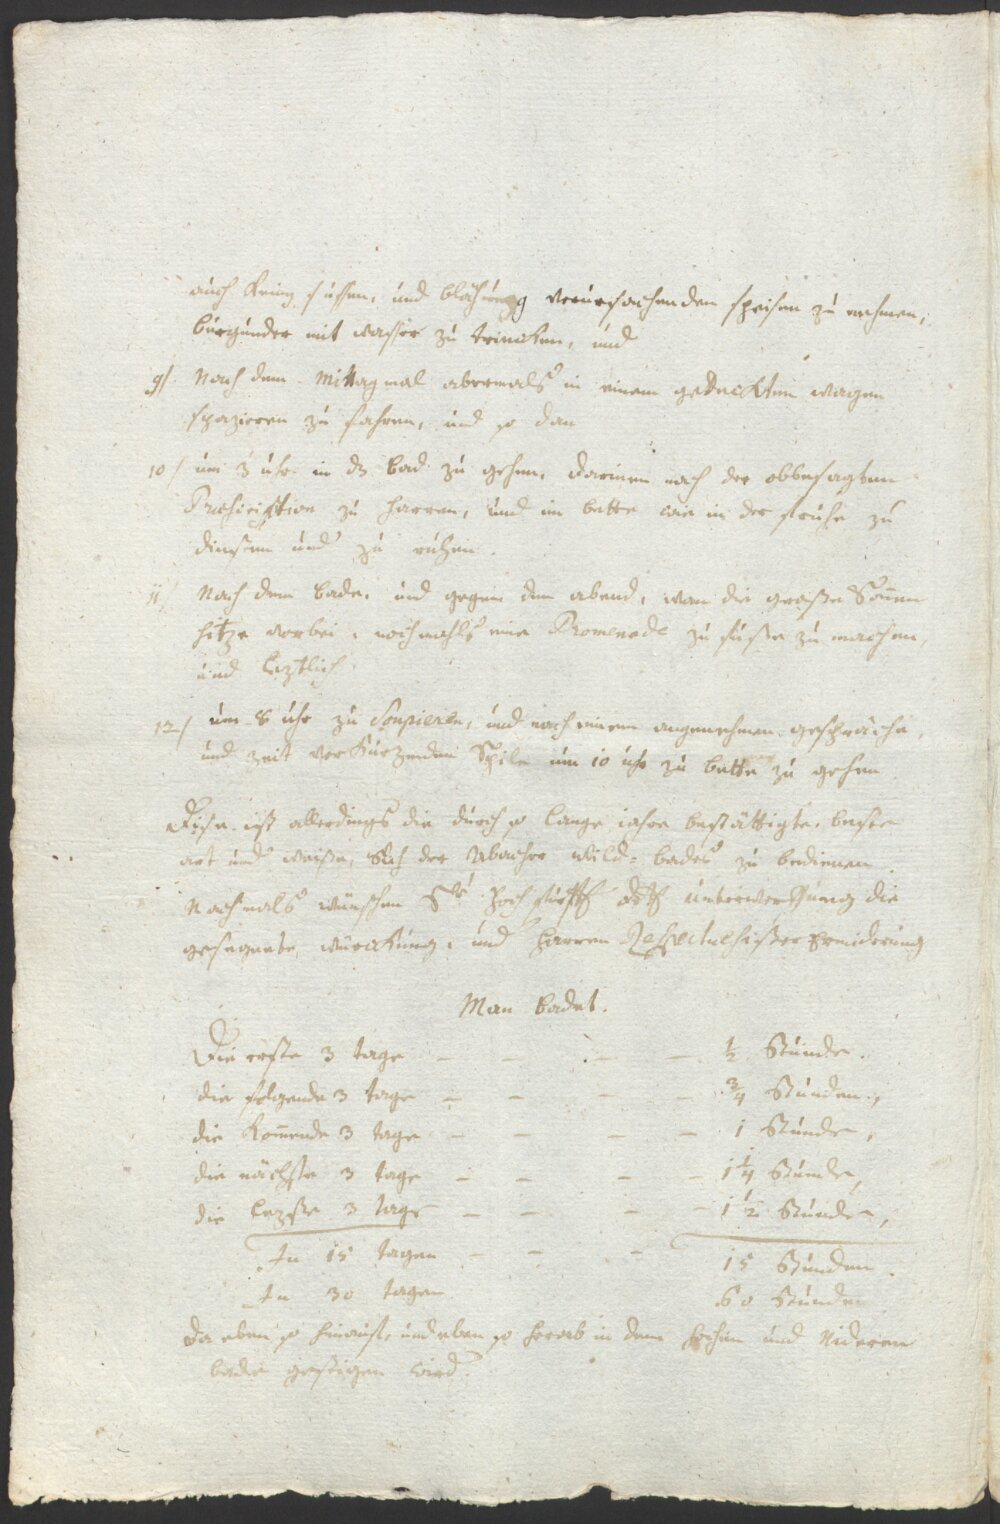 auch keine süssen, und blähung verursachenden speisen zu nehmen,
burgunder mit wasser zu trincken, und
9/ Nach dem Mittagmal abermals in einem gedeckten wagen
spazieren zu fahren, und so dan
10/ um 3 uhr in dz bad zu gehen, darinnen nach der obbesagten
Preskription zu harren, und im bette wie in der fruhe zu
dünsten und zu ruhen.
11/ Nach dem bade, und gegen den abend, wan die große Soñen
hitze vorbei, nochmahls eine Promenade zu fuße zu machen,
und leztlich
12/ um 8 uhr zu Soupieren, und nach einem angenehmen gespräche,
und zeit verkürzenden Spile um 10 uhr zu bette zu gehen
Dise ist allerdings die durch so lange iahre bestättigte, beste
art und weise, sich der wild-bades zu bedienen
Nachmals wünschen Sr Hochfürstl in unterwerffung die
gesegnete würckung, und harren
Man badet.
Die erste 3 tage - - - - ½ Stunde.
die folgende 3 tage - - - - ¾ Stunden,
die Kom̃ende 3 tage - - - - 1 Stunde,
die nächste 3 tage - - - - 1¼ Stunde,
die lezste 3 tage - - - - 1½ Stunde,
In 15 tagen - - - 15 Stunden.
In 30 tagen 60 Stunden
da eben so hinauf, und eben so herab in dem hohen und Nideren
bade gestigen wird.